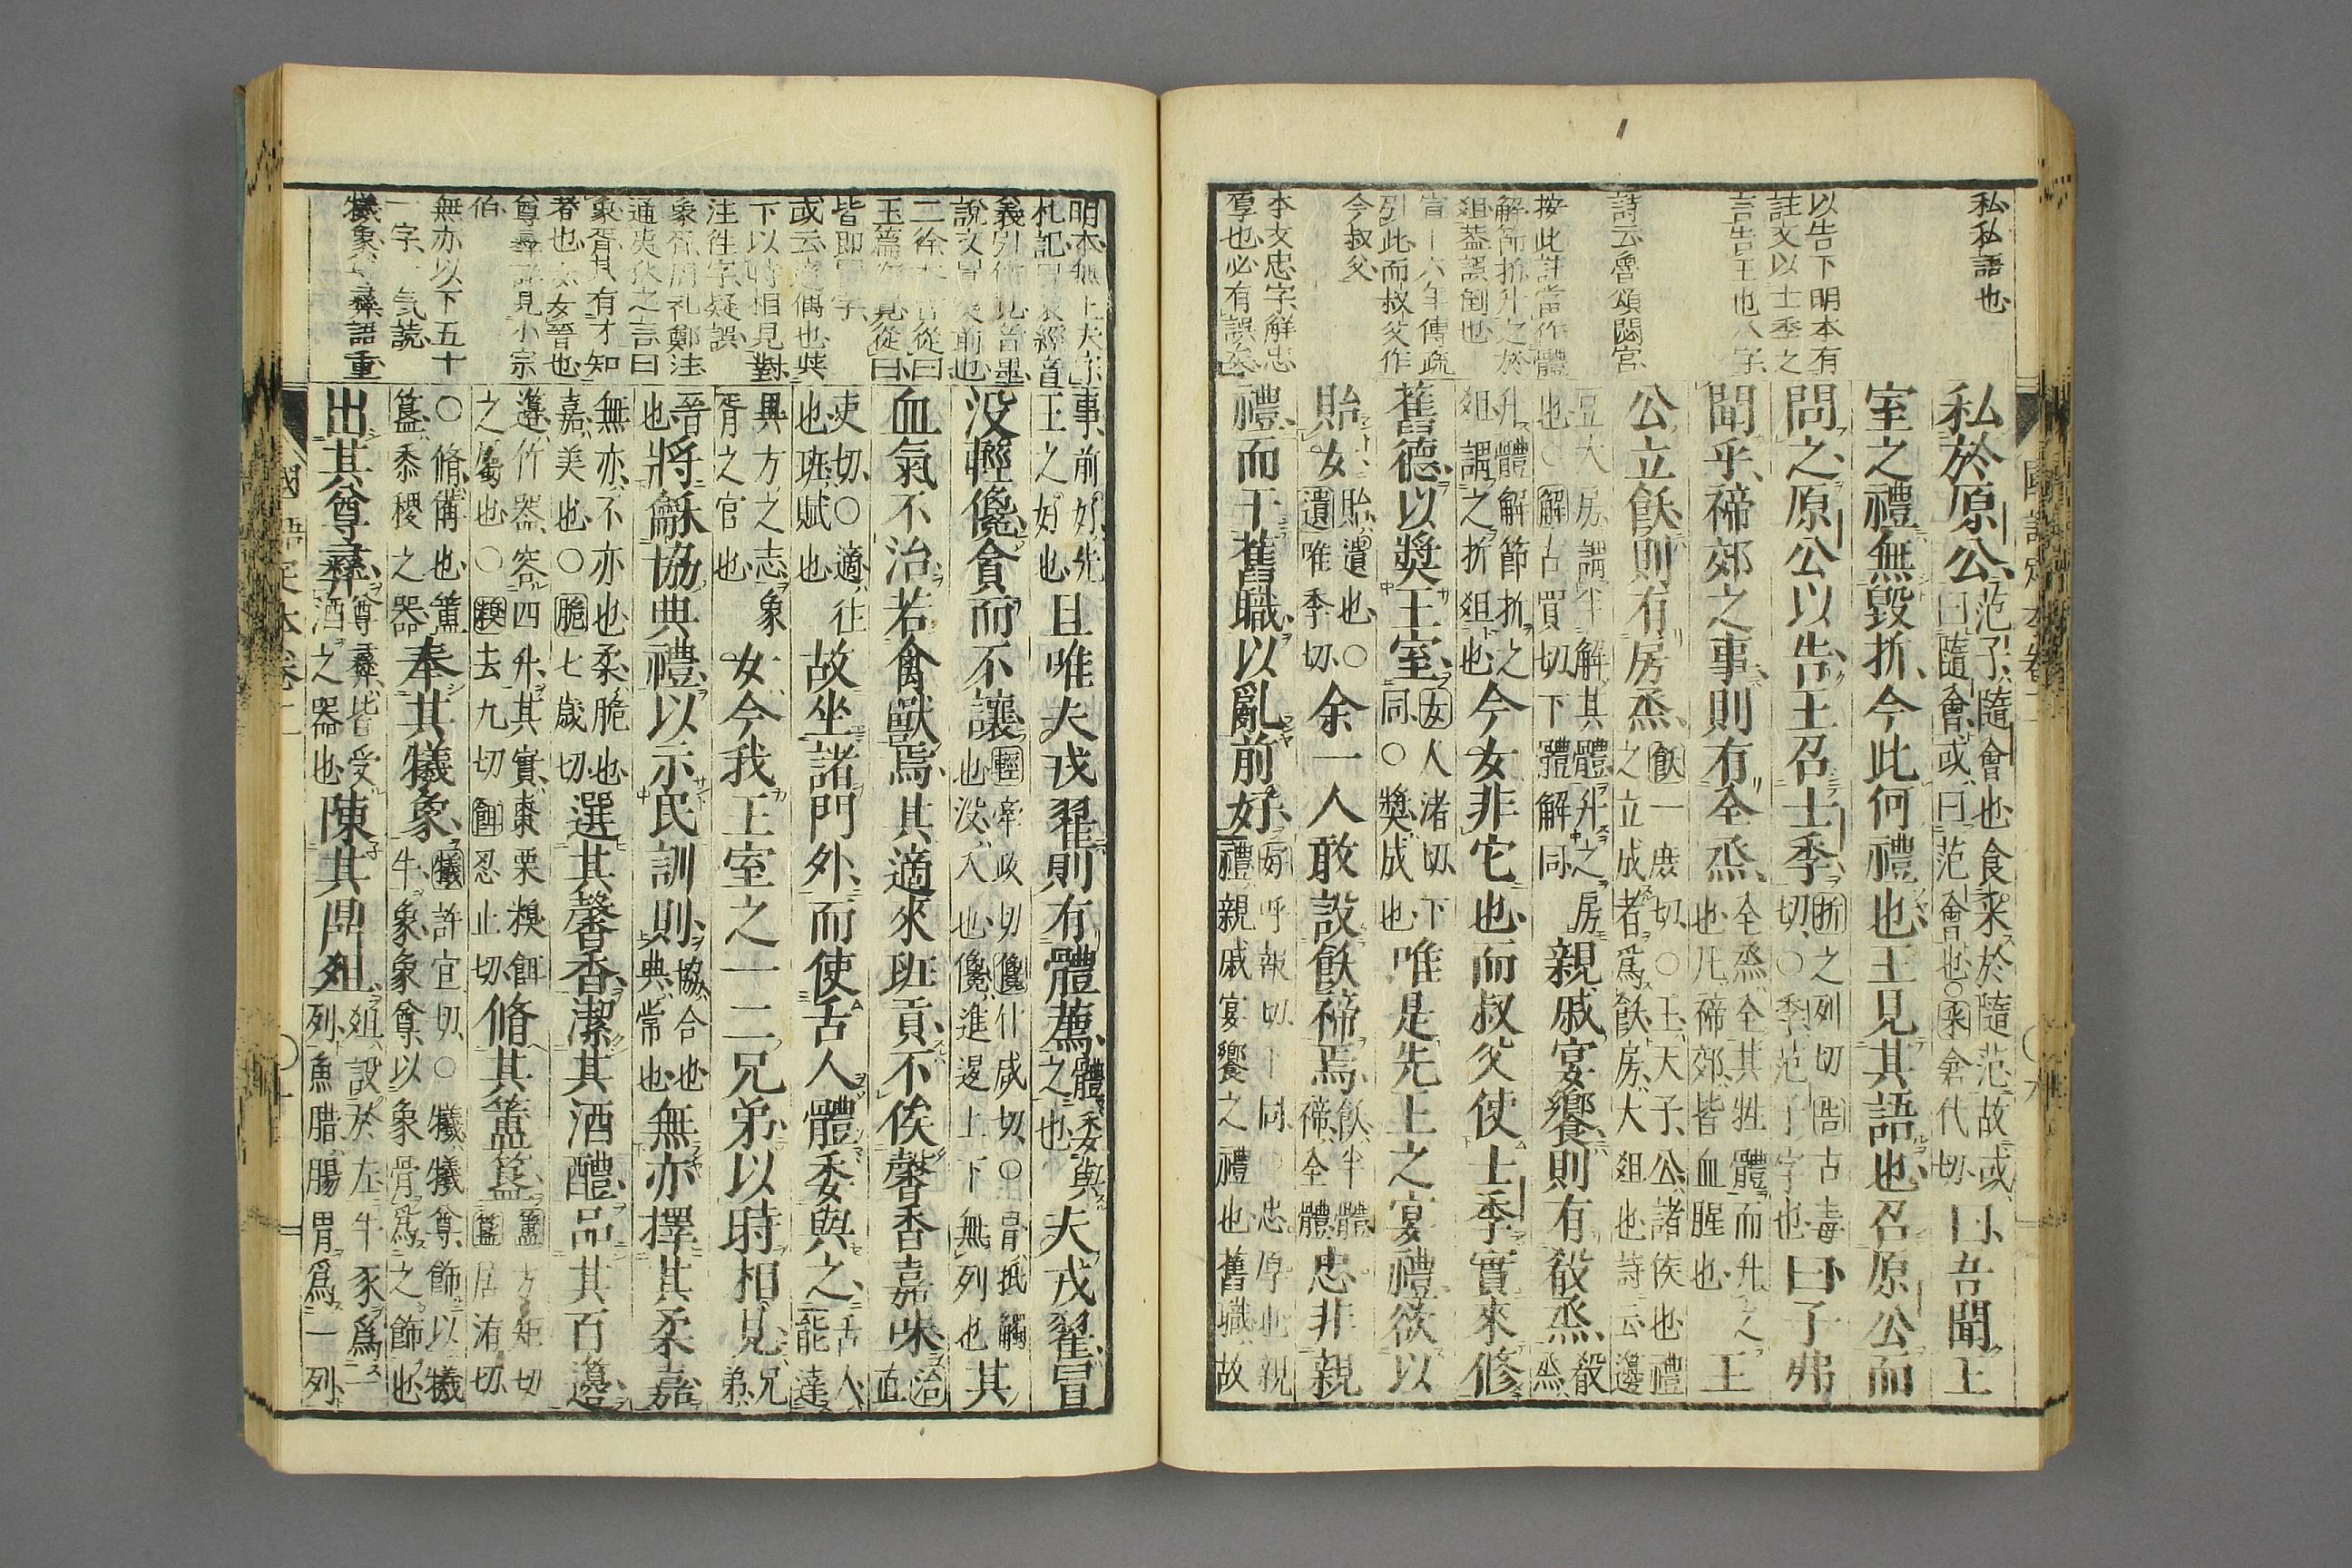 私私語也
以告下明本有
註文以士季之
言告王也八字
詩云魯頌閟宮
按此註當作體
解節折升之於
俎蓋誤倒也
宣十六年傳疏
引此而叔父作
今叔父
本文忠字解忠
厚也必有誤矣
國語定本卷二
私於原公范子隨會也食采於隨范故或曰隨會或曰范會也○采倉代切曰吾聞王
室之禮無毀折今此何禮也王見其語也召原公而
問之原公以告王召士季折之列切告古毒切○季范子字也曰子弗
聞乎禘郊之事則有全烝全烝全其牲體而升之也凡禘郊皆血腥也王
公立飫則有房烝飫一庶切○王天子公諸侯也禮之立成者爲飫房大俎也詩云籩
豆大房謂半解其體升之房也○解古買切下體解同親戚宴饗則有殽烝殽烝
升體解節折之俎謂之折俎也今女非它也而叔父使士季實來修
舊德以奬王室女人渚切下同○奬成也唯是先王之宴禮欲以
貽女貽遺也○遺唯季切余一人敢設飫禘焉飫半體禘全體忠非親
禮而干舊職以亂前好好呼報切下同○忠厚也親禮親戚宴饗之禮也舊職故
明本無上夫字
札記冒衣經音
義引作見音墨
說文冒突前也
二徐本皆從曰
玉篇有見從曰
皆即冒字
或云適偶也與
下以時相見對
注往字疑誤
象胥周礼鄭注
通夷狄之言曰
象胥其有才知
者也女女晉也
尊彝註見小宗
伯
無亦以下五十
一字一気読
犧象尊彝語重
事前好先王之好也且唯夫戎翟則有體薦體委與之也夫戎翟冒
没輕儳貪而不讓輕牽政切儳仕咸切○冒抵觸也没入也儳進退上下無列也其
血氣不治若禽獸焉其適來班貢不俟馨香嘉味治直
吏切○適往也班賦也故坐諸門外而使舌人體委與之舌人能達
異方之志象胥之官也女今我王室之一二兄弟以時相見兄弟
晉也將龢協典禮以示民訓則協合也典常也無亦擇其柔嘉
無亦不亦也柔脆也嘉美也○脆七歲切選其馨香潔其酒醴品其百籩
籩竹器容四升其實棗栗糗餌之屬也○糗去九切餌忍止切脩其簠簋簠方矩切簋居洧切
○脩備也簠簋黍稷之器奉其犧象犧許宜切○犧犧尊飾以犧牛象象尊以象骨爲之飾也
出其尊彝尊彝皆受酒之器也陳其鼎俎俎設於左牛豕爲一列魚腊腸胃爲一列
國語定本卷二